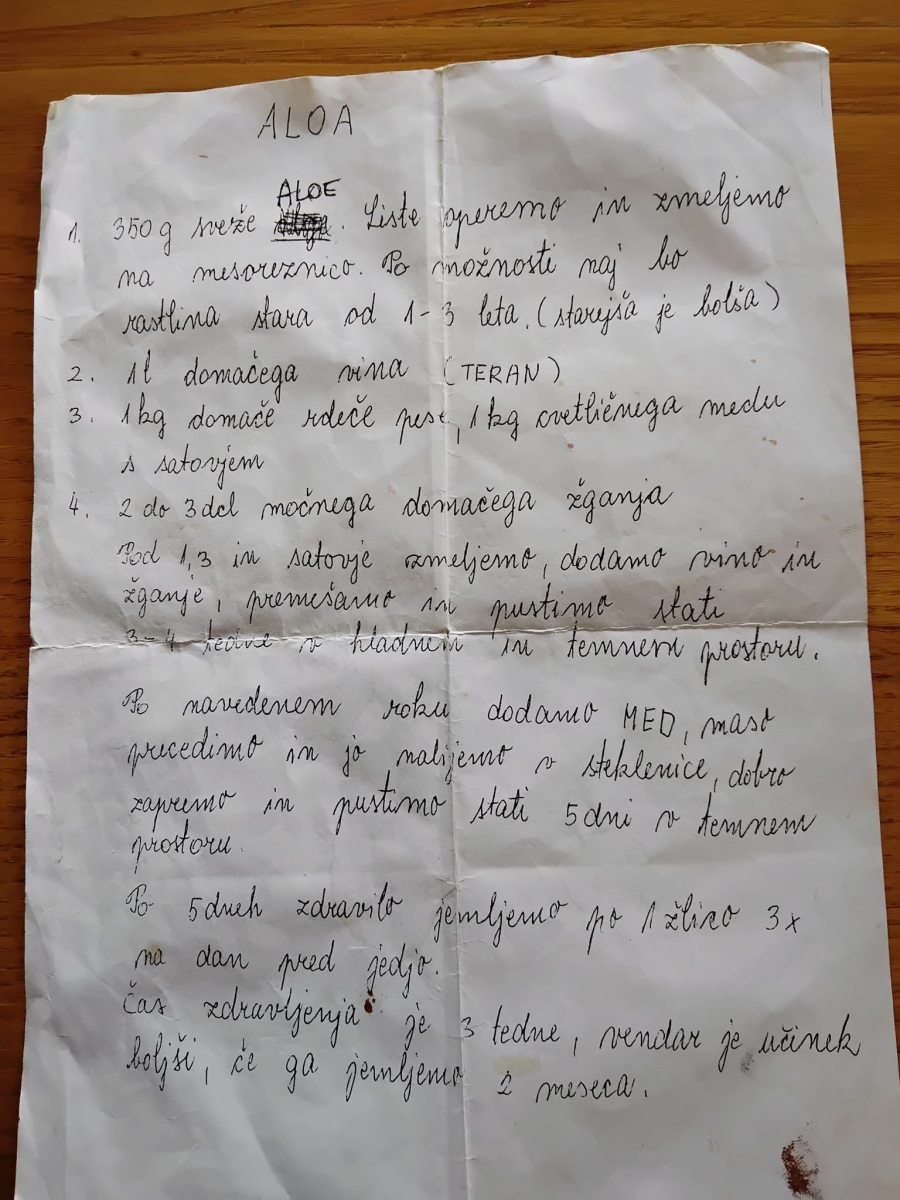 ALOA
ALOE
1. 350 g sveže . Liste operemo in zmeljemo
na mesoreznico. Po možnosti naj bo
rastlina stara od 1-3 leta. (starejša je bolša)
2. 1l domačega vina (TERAN)
3. 1kg domače rdeče pese, 1kg cvetličnega medu
s satovjem
4. 2 do 3 dcl močnega domačega žganja
Pod 1,3 in satovje zmeljemo, dodamo vino in
žganje, premešamo in pustimo stati
3-4 tedne v hladnem in temnem prostoru.
Po navedenem roku dodamo MED, maso
precedimo in jo nalijemo v steklenice, dobro
zapremo in pustimo stati 5 dni v temnem
prostoru.
Po 5 dneh zdravilo jemljemo po 1 žlico 3x
na dan pred jedjo.
Čas zdravljenja je 3 tedne, vendar je učinek
boljši, če ga jemljemo 2 meseca.